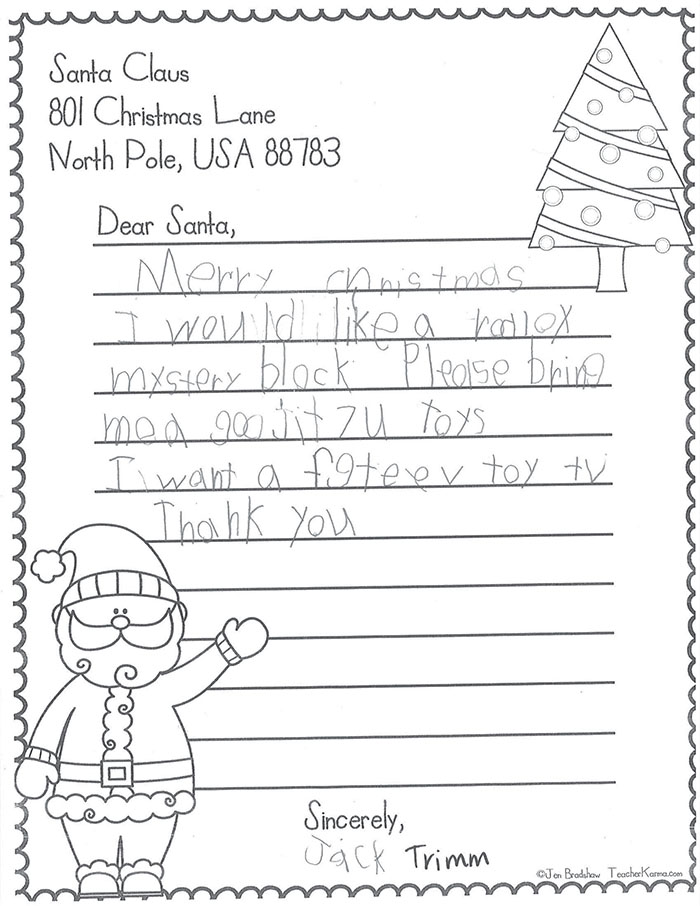 Santa Claus
801 Christmas Lane
North Pole, USA 88783
Dear Santa,
Merry christmas
I would like a rodlox
mystery block Please bring
me a goojit zu toys
I want a fgteev toy tv
Thank you
Sincerely,
Jack Trimm
©Jen Bradshaw TeacherKarma.com